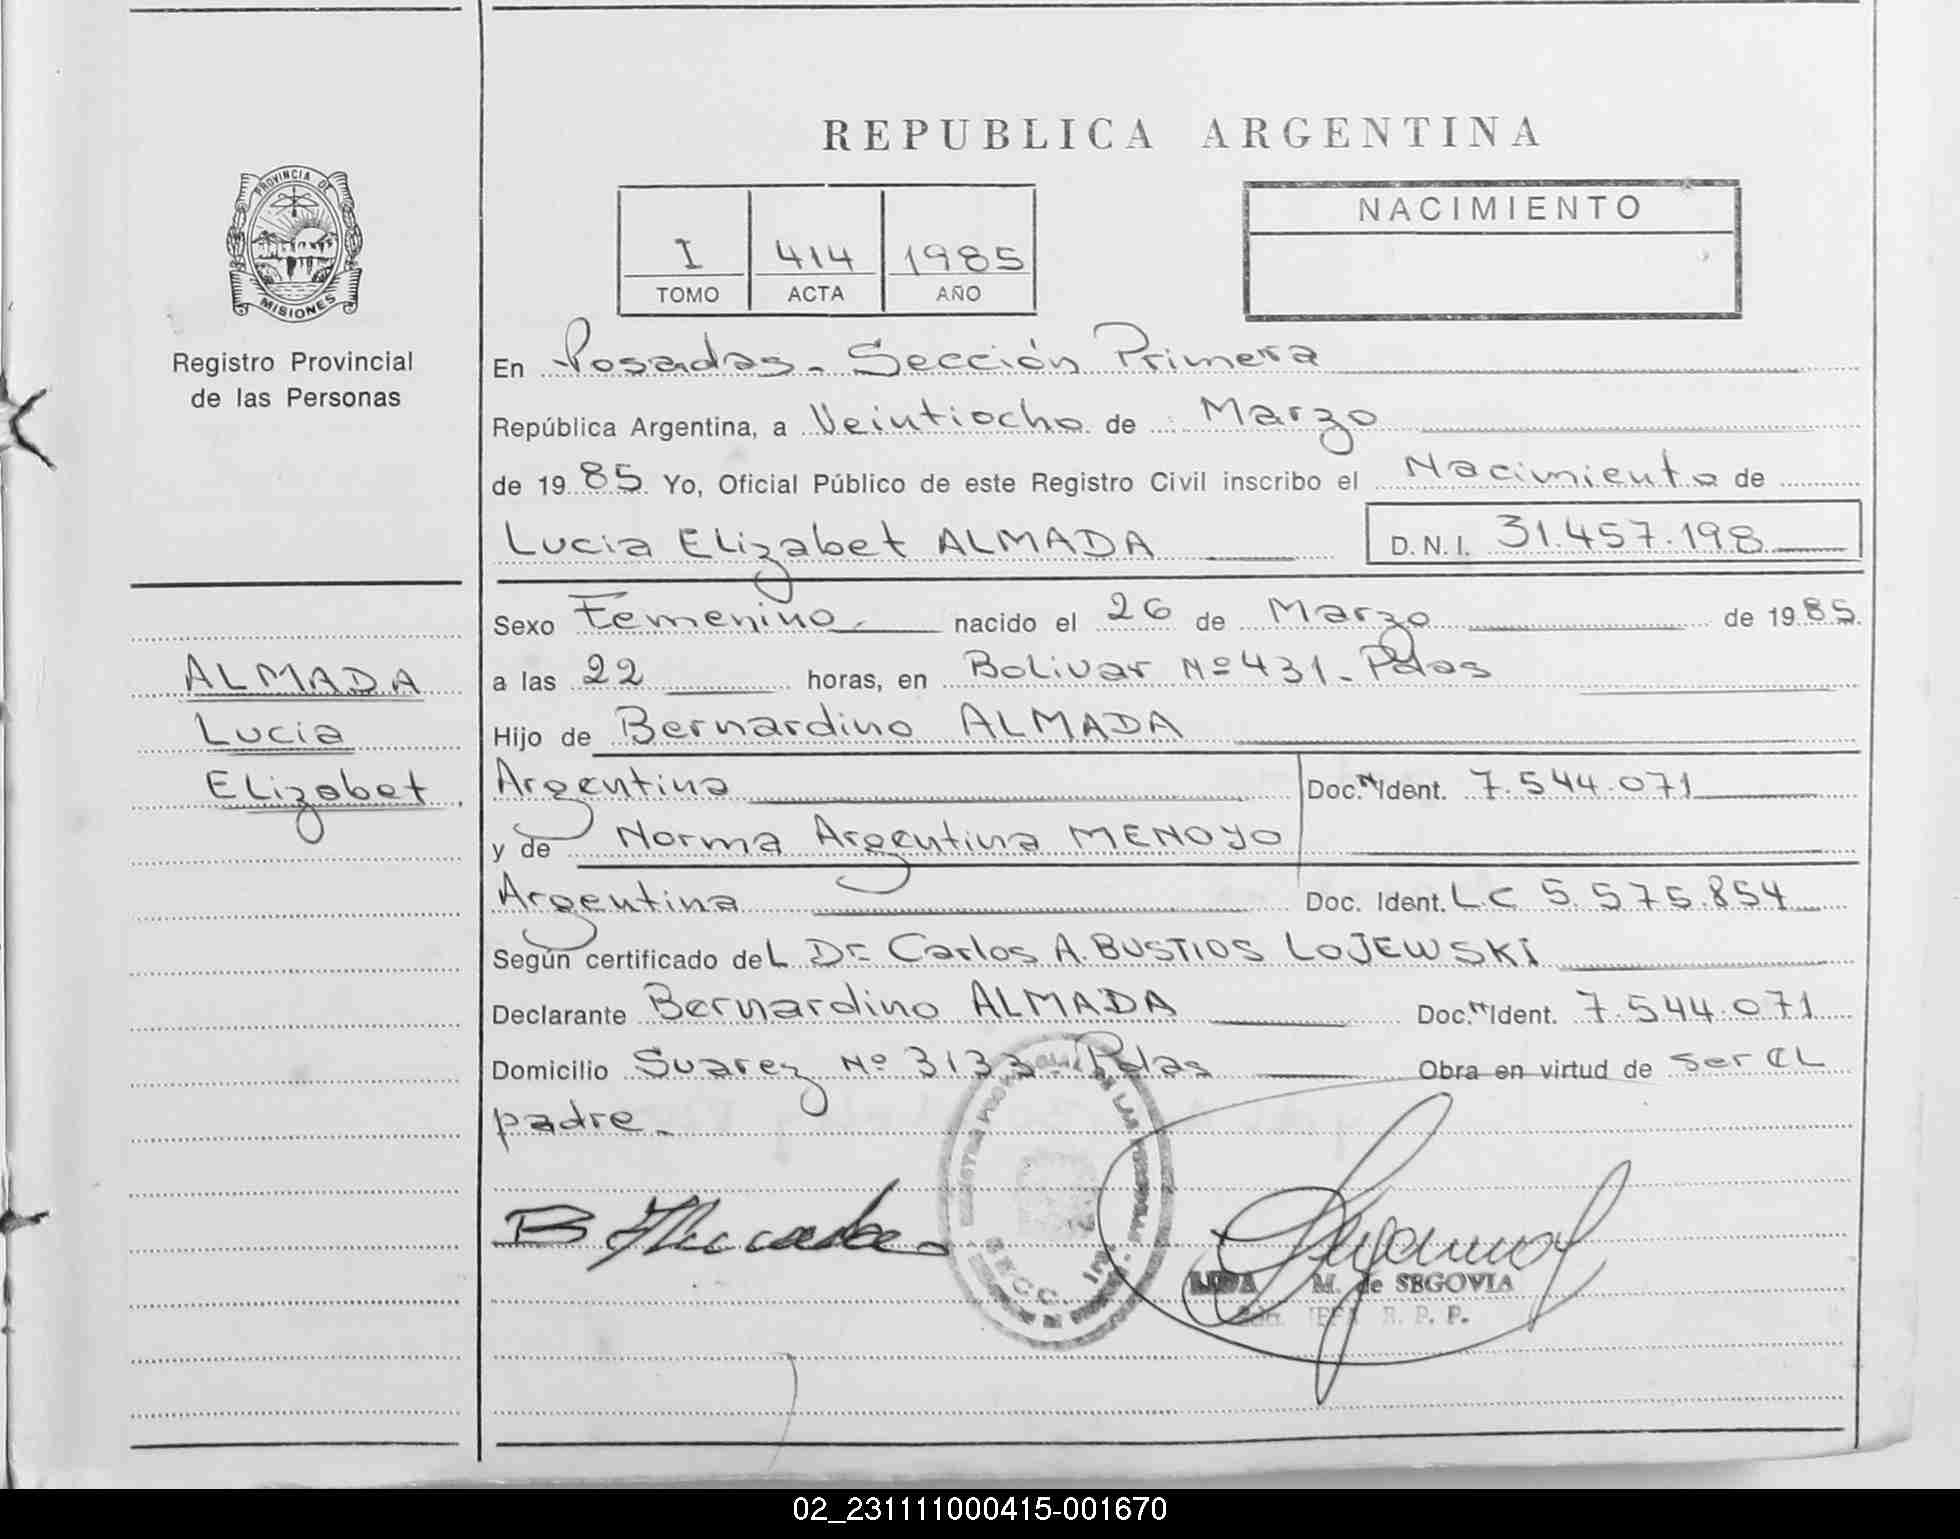 REPUBLICA ARGENTINA
PROVINCIA DE
MISIONES
Registro Provincial
de las Personas
I 414 1985
TOMO ACTA AÑO
NACIMIENTO
En Posadas - Sección Primera
República Argentina, a Veintiocho de Marzo
de 1985 Yo, Oficial Público de este Registro Civil inscribo el Nacimiento de
Lucia Elizabet ALMADA D.N.I. 31.457.198
ALMADA
Lucia
Elizabet
Sexo Femenino nacido el 26 de Marzo de 1985
a las 22 horas, en Bolivar Nº 431 - Pdas
Hijo de Bernardino ALMADA
Argentina Doc. M Ident. 7.544.071
y de Norma Argentina MENOYO
Argentina Doc. Ident. L.C 5.575.854
Según certificado del Dr Carlos A. BUSTIOS LOJEWSKI
Declarante Bernardino ALMADA Doc. M Ident. 7.544.071
Domicilio Suarez Nº 3133 - Pdas Obra en virtud de ser el
padre.
B Almada
SECC. 1ra.
M. de SEGOVIA
JEFA R. P. P.
02_231111000415-001670